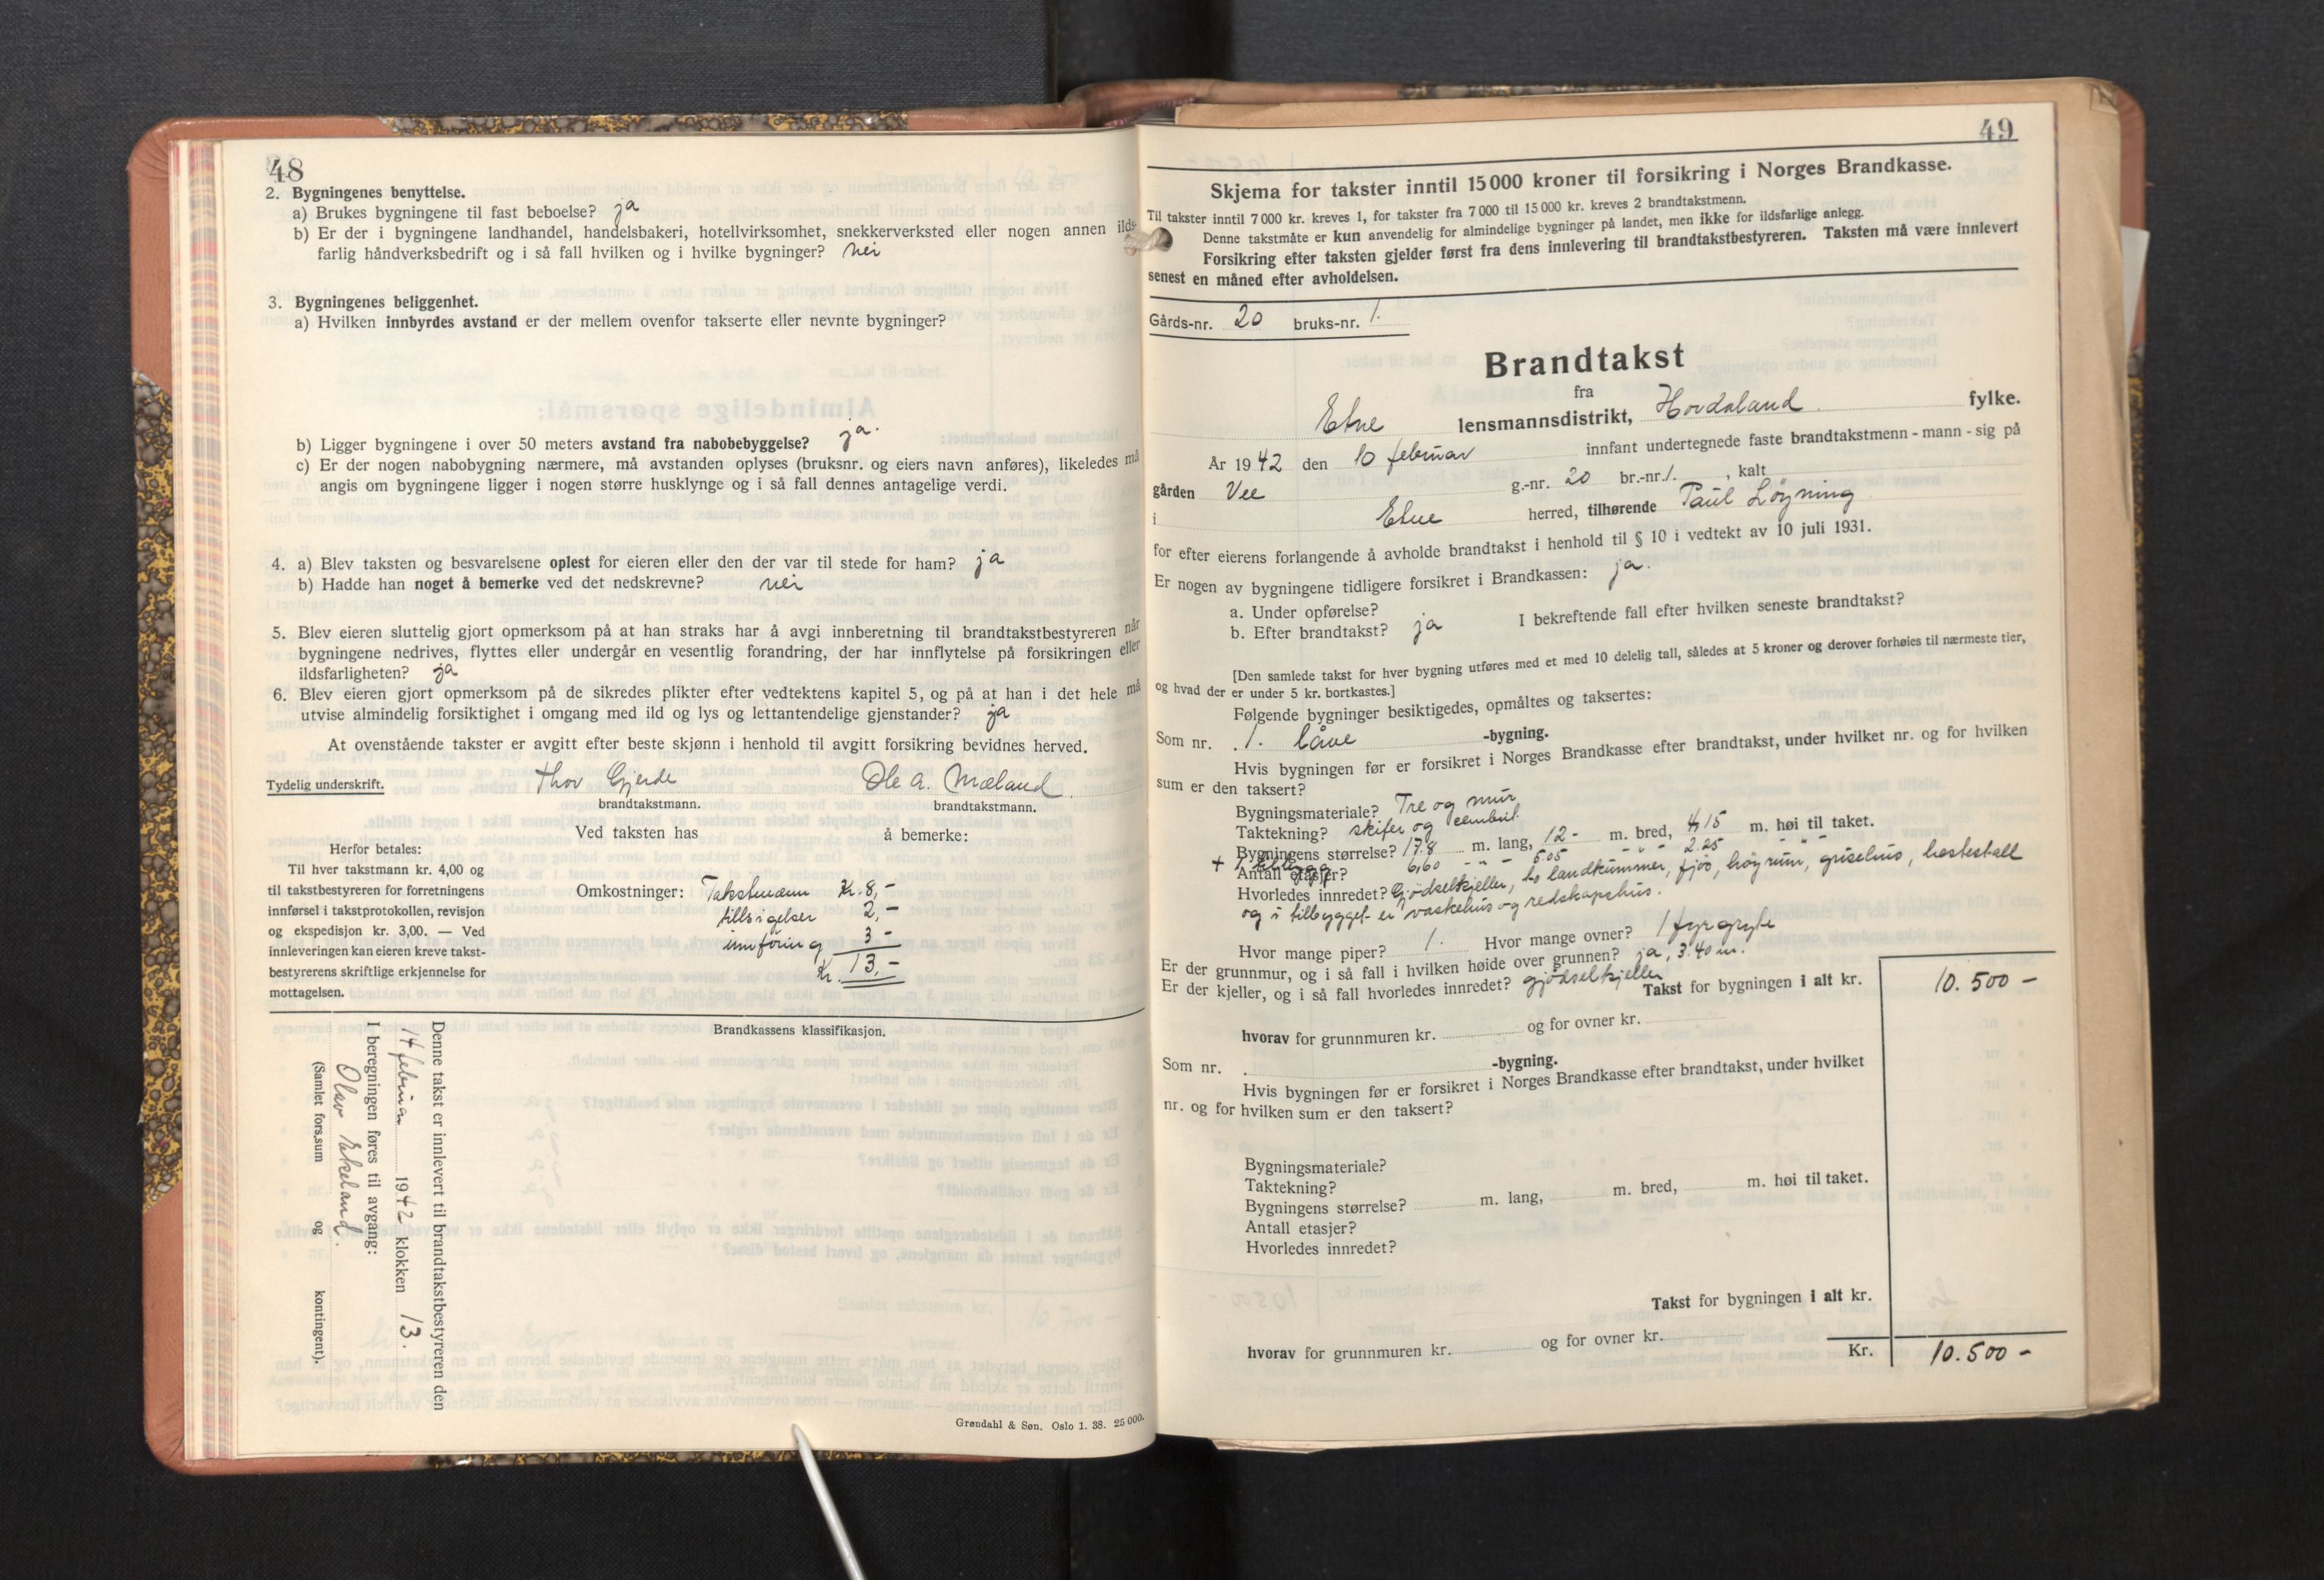 48
2. Bygningenes benyttelse.
a) Brukes bygningene til fast beboelse? ja
b) Er der i bygningene landhandel, handelsbakeri, hotellvirksomhet, snekkerverksted eller nogen annen ilds-
farlig håndverksbedrift og i så fall hvilken og i hvilke bygninger? nei
3. Bygningenes beliggenhet.
a) Hvilken innbyrdes avstand er der mellem ovenfor takserte eller nevnte bygninger?
b) Ligger bygningene i over 50 meters avstand fra nabobebyggelse? ja.
c) Er der nogen nabobygning nærmere, må avstanden oplyses (bruksnr. og eiers navn anføres), likeledes må
angis om bygningene ligger i nogen større husklynge og i så fall dennes antagelige verdi.
4. a) Blev taksten og besvarelsene oplest for eieren eller den der var til stede for ham? ja
b) Hadde han noget å bemerke ved det nedskrevne? nei
5. Blev eieren sluttelig gjort opmerksom på at han straks har å avgi innberetning til brandtakstbestyreren når
bygningene nedrives, flyttes eller undergår en vesentlig forandring, der har innflytelse på forsikringen eller
ildsfarligheten? ja
6. Blev eieren gjort opmerksom på de sikredes plikter efter vedtektens kapitel 5, og på at han i det hele må
utvise almindelig forsiktighet i omgang med ild og lys og lettantendelige gjenstander? ja
At ovenstående takster er avgitt efter beste skjønn i henhold til avgitt forsikring bevidnes herved.
Tydelig underskrift. Thor Gjerde Ole A. Mæland.
brandtakstmann. brandtakstmann.
Ved taksten has å bemerke:
Herfor betales:
Til hver takstmann kr. 4,00 og
til takstbestyreren for forretningens
innførsel i takstprotokollen, revisjon
og ekspedisjon kr. 3,00. — Ved
innleveringen kan eieren kreve takst-
bestyrerens skriftlige erkjennelse for
mottagelsen.
Omkostninger: Takstmænn Kr. 8,-
tillsigelser 2,-
innføring 3-
Kr. 13,-
Brandkassens klassifikasjon.
Denne takst er innlevert til brandtakstbestyreren den
14 februar 1942 klokken 13.
I beregningen føres til avgang:
Olav Ekeland.
(Samlet fors.sum og kontingent).
Grøndahl & Søn. Oslo 1. 38. 25 000.
49
Skjema for takster inntil 15 000 kroner til forsikring i Norges Brandkasse.
Til takster inntil 7 000 kr. kreves 1, for takster fra 7 000 til 15 000 kr. kreves 2 brandtakstmenn.
Denne takstmåte er kun anvendelig for almindelige bygninger på landet, men ikke for ildsfarlige anlegg.
Forsikring efter taksten gjelder først fra dens innlevering til brandtakstbestyreren. Taksten må være innlevert
senest en måned efter avholdelsen.
Gårds-nr. 20 bruks-nr. 1.
Brandtakst
fra
Etne lensmannsdistrikt, Hordaland fylke.
År 1942 den 10 februar innfant undertegnede faste brandtakstmenn - mann - sig på
gården Vee g.-nr. 20 br.-nr. 1. , kalt
i Etne herred, tilhørende Paul Løyning
for efter eierens forlangende å avholde brandtakst i henhold til § 10 i vedtekt av 10 juli 1931.
Er nogen av bygningene tidligere forsikret i Brandkassen: ja.
a. Under opførelse?
b. Efter brandtakst? ja I bekreftende fall efter hvilken seneste brandtakst?
[Den samlede takst for hver bygning utføres med et med 10 delelig tall, således at 5 kroner og derover forhøies til nærmeste tier,
og hvad der er under 5 kr. bortkastes.]
Følgende bygninger besiktigedes, opmåltes og taksertes:
Som nr. 1. låve -bygning.
Hvis bygningen før er forsikret i Norges Brandkasse efter brandtakst, under hvilket nr. og for hvilken
sum er den taksert?
Bygningsmateriale? Tre og mur
Taktekning? skifer og eternit.
Bygningens størrelse? 17.8 m. lang, 12 - m. bred, 4,15 m. høi til taket.
+ 1 tilbygg 6,60 - " - 5.05 - " - 2.25 - " -
Antall etasjer?
Hvorledes innredet? Gjødselkjeller, to landkummer, fjøs, høyrum, grisehus, hestestall
og i tilbygget er vaskehus og redskapshus.
Hvor mange piper? 1. Hvor mange ovner? 1 fyrgryte
Er der grunnmur, og i så fall i hvilken høide over grunnen? ja, 3.40 m.
Er der kjeller, og i så fall hvorledes innredet? gjødselkjeller
Takst for bygningen i alt kr. 10.500 -
hvorav for grunnmuren kr. og for ovner kr.
Som nr. -bygning.
Hvis bygningen før er forsikret i Norges Brandkasse efter brandtakst, under hvilket
nr. og for hvilken sum er den taksert?
Bygningsmateriale?
Taktekning?
Bygningens størrelse? m. lang, m. bred, m. høi til taket.
Antall etasjer?
Hvorledes innredet?
Takst for bygningen i alt kr.
hvorav for grunnmuren kr. og for ovner kr.
Kr. 10.500 -